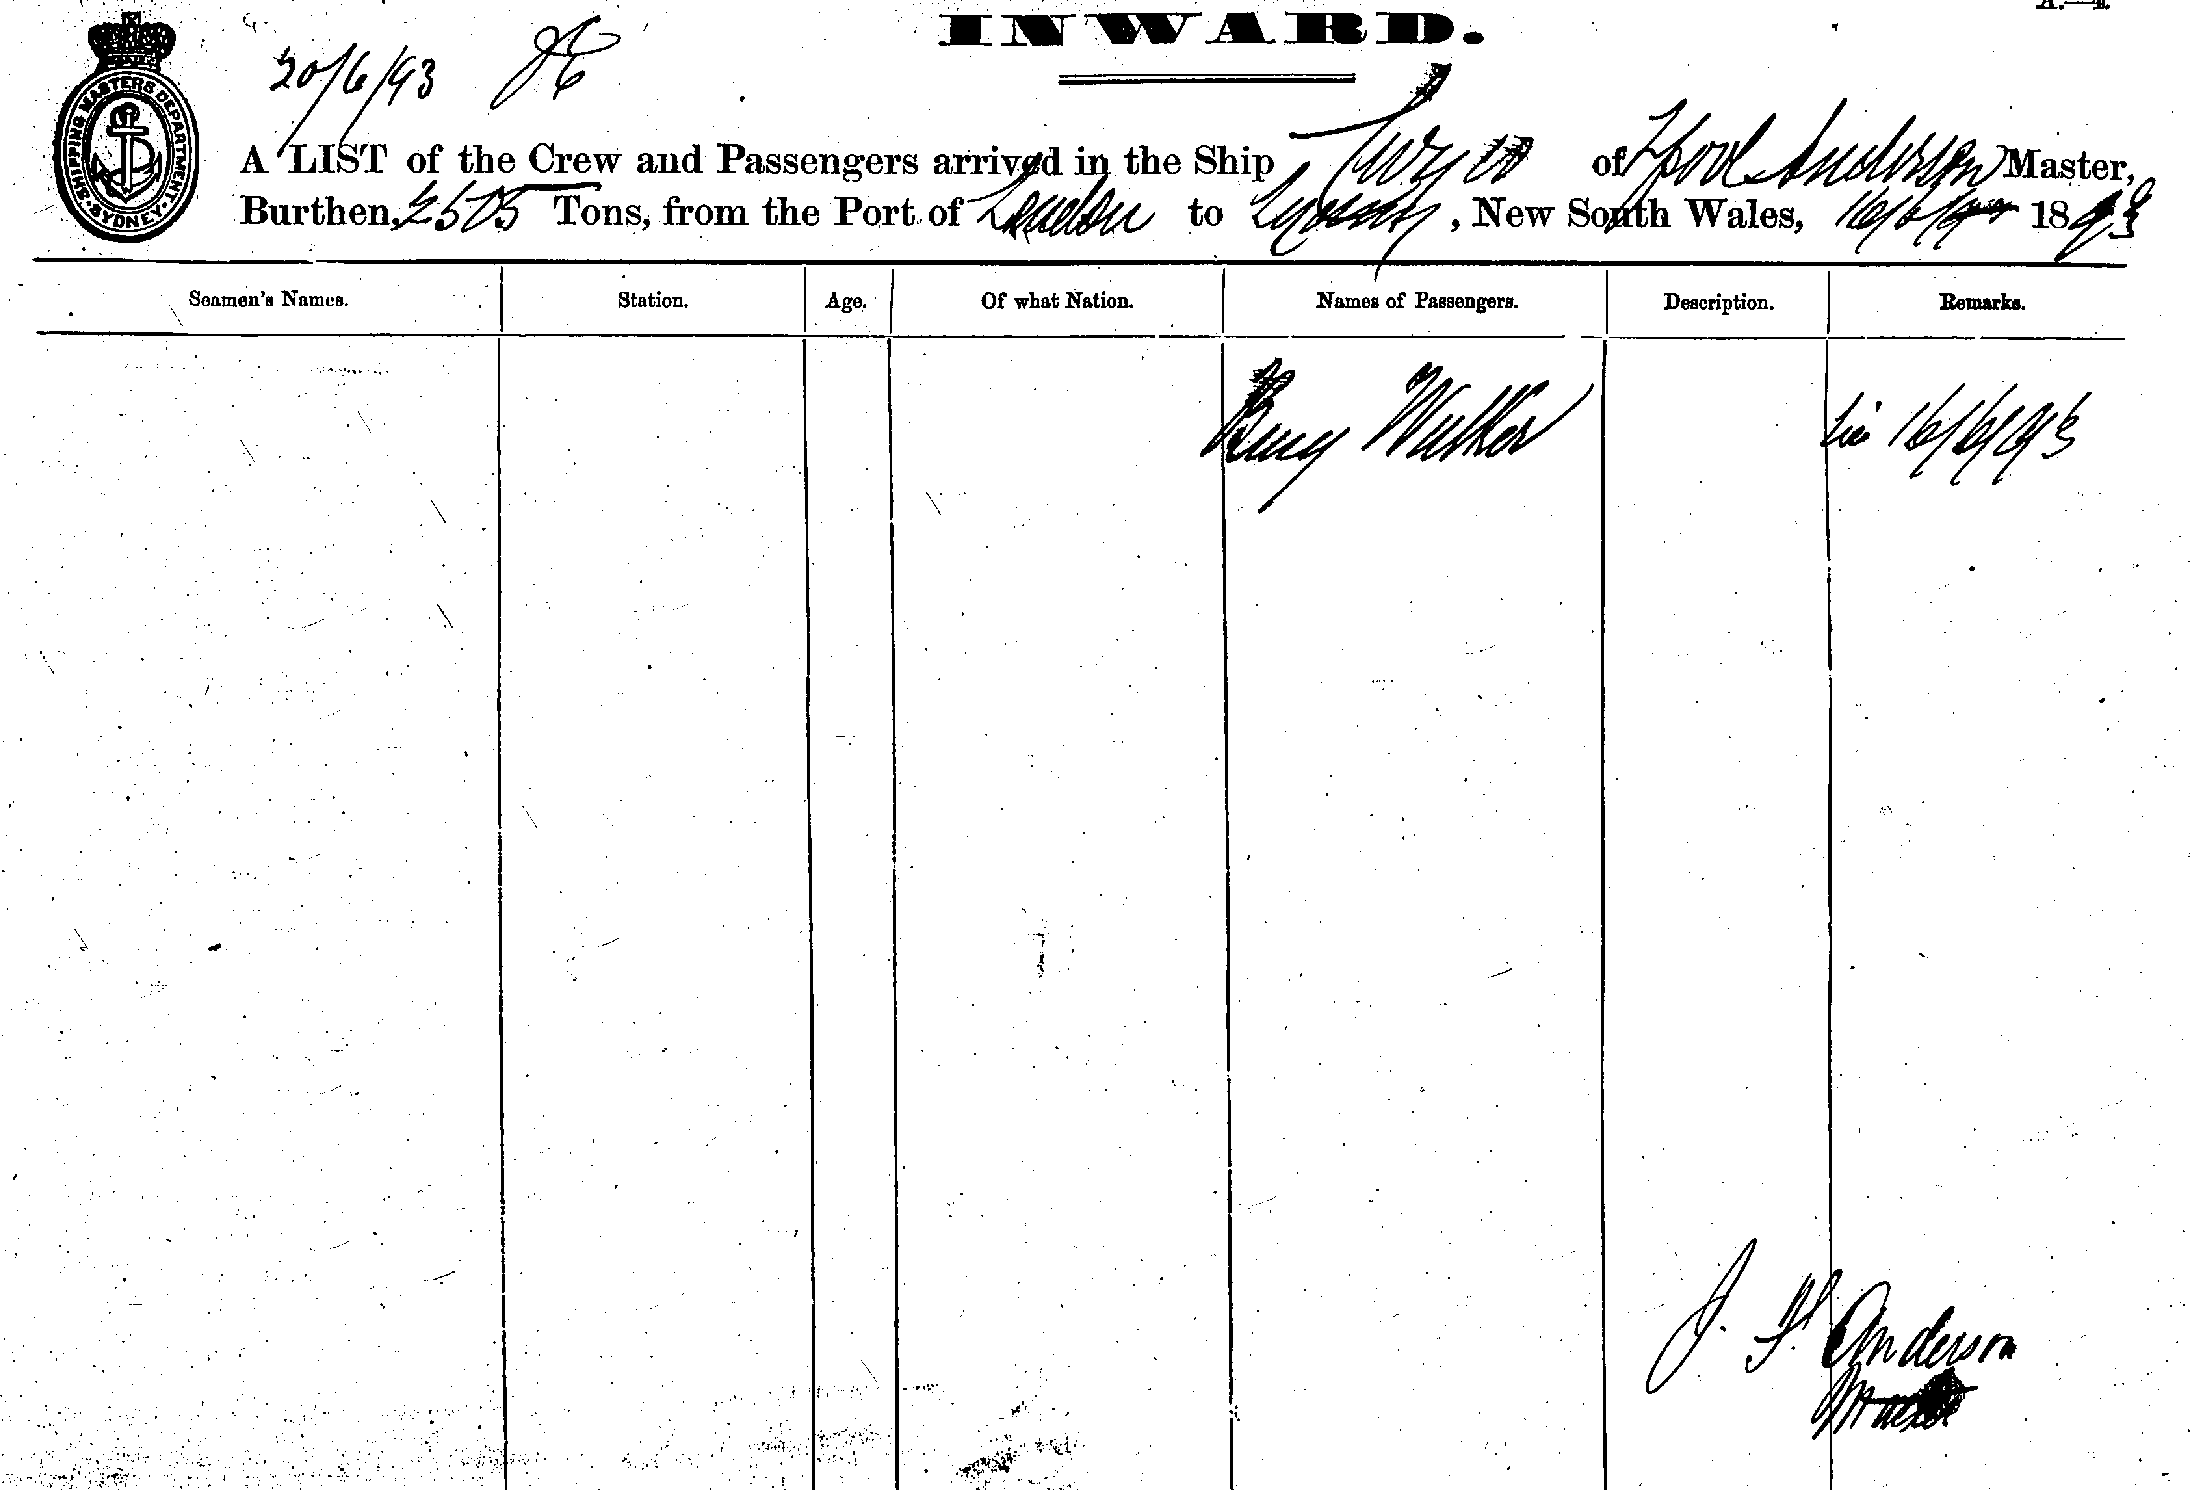 INWARD.
20/6/93
SHIPPING MASTERS DEPARTMENT SYDNEY
A LIST of the Crew and Passengers arrived in the Ship of L'pool Anderson Master,
Burthen, 2505 Tons, from the Port of London to Sydney, New South Wales, 16/6/93 1893
Seamen's Names. Station. Age. Of what Nation. Names of Passengers. Description. Remarks.
Walker 16/6/93
J. F. Anderson
Master